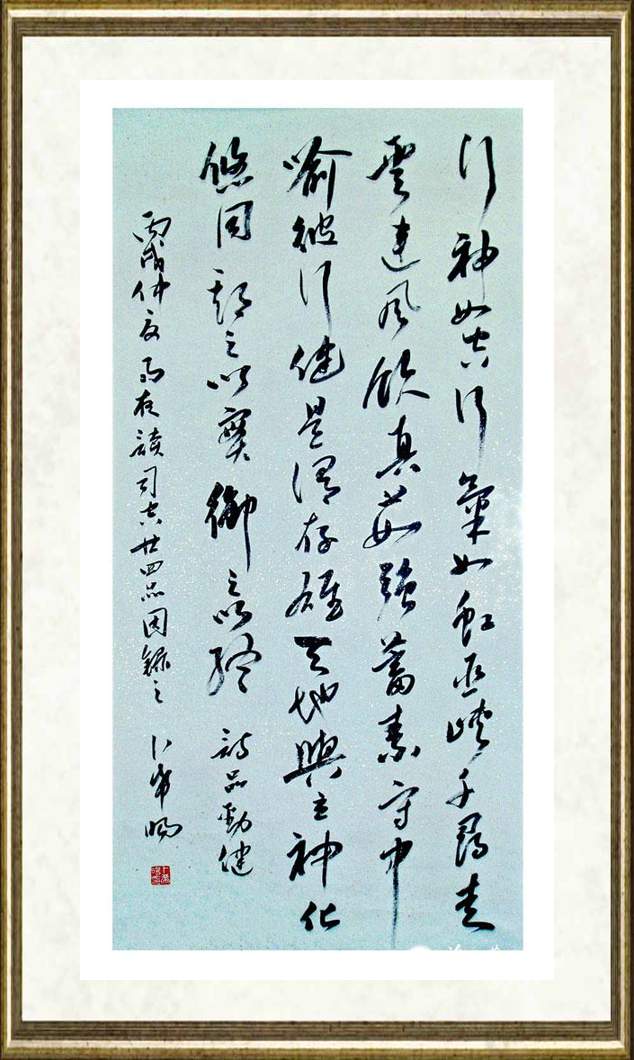 行神如空行氣如虹巫峽千尋走
雲連風飲真茹強蓄素守中
喻彼行健是謂存雄天地與立神化
悠同期之以實御之以終 詩品勁健
丙戌仲夏雨夜讀司空廿四品因錄之 卜希暘